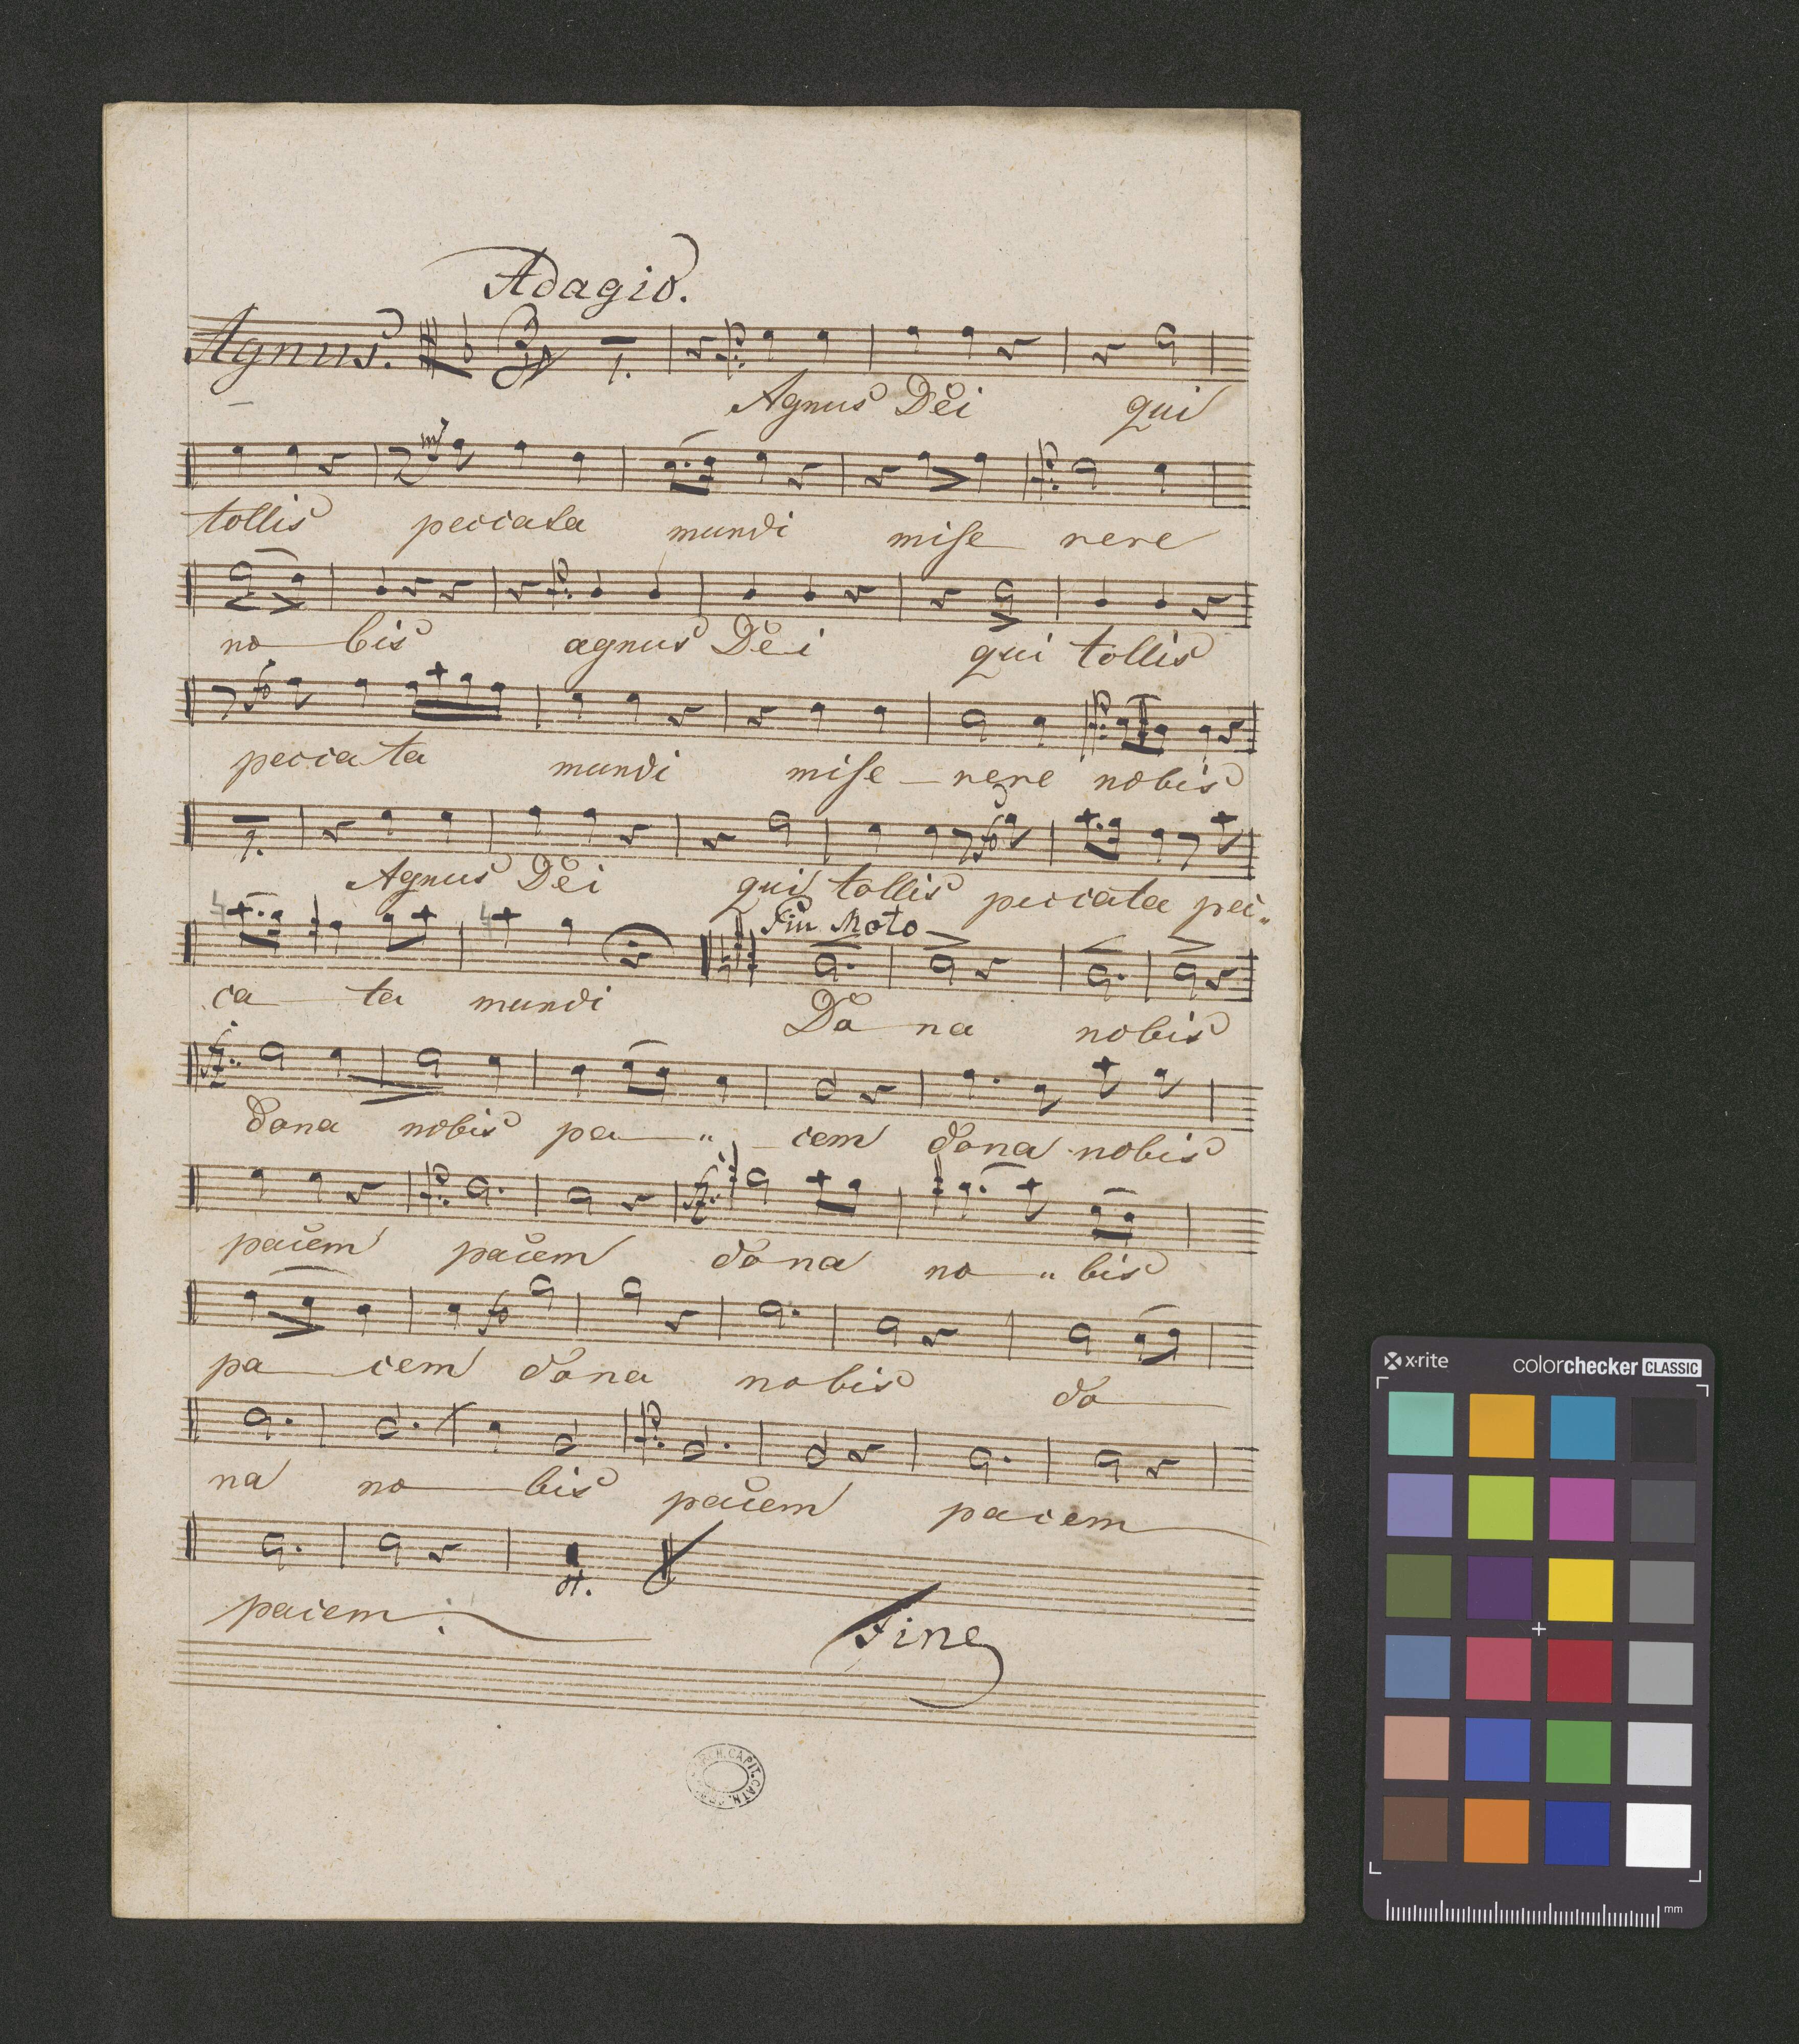 Adagio.
Agnus.
Agnus Dei qui
tollis peccata mundi mise rere
no bis agnus Dei qui tollis
peccata mundi mise rere nobis
Agnus Dei qui tollis peccata pec„
Piu Moto
ca ta mundi Do na nobis
dona nobis pa „ cem dona nobis
pacem pacem dona no „ bis
pa cem dona nobis do
na no bis pacem pacem
pacem
Fine
x·rite colorchecker CLASSIC
mm